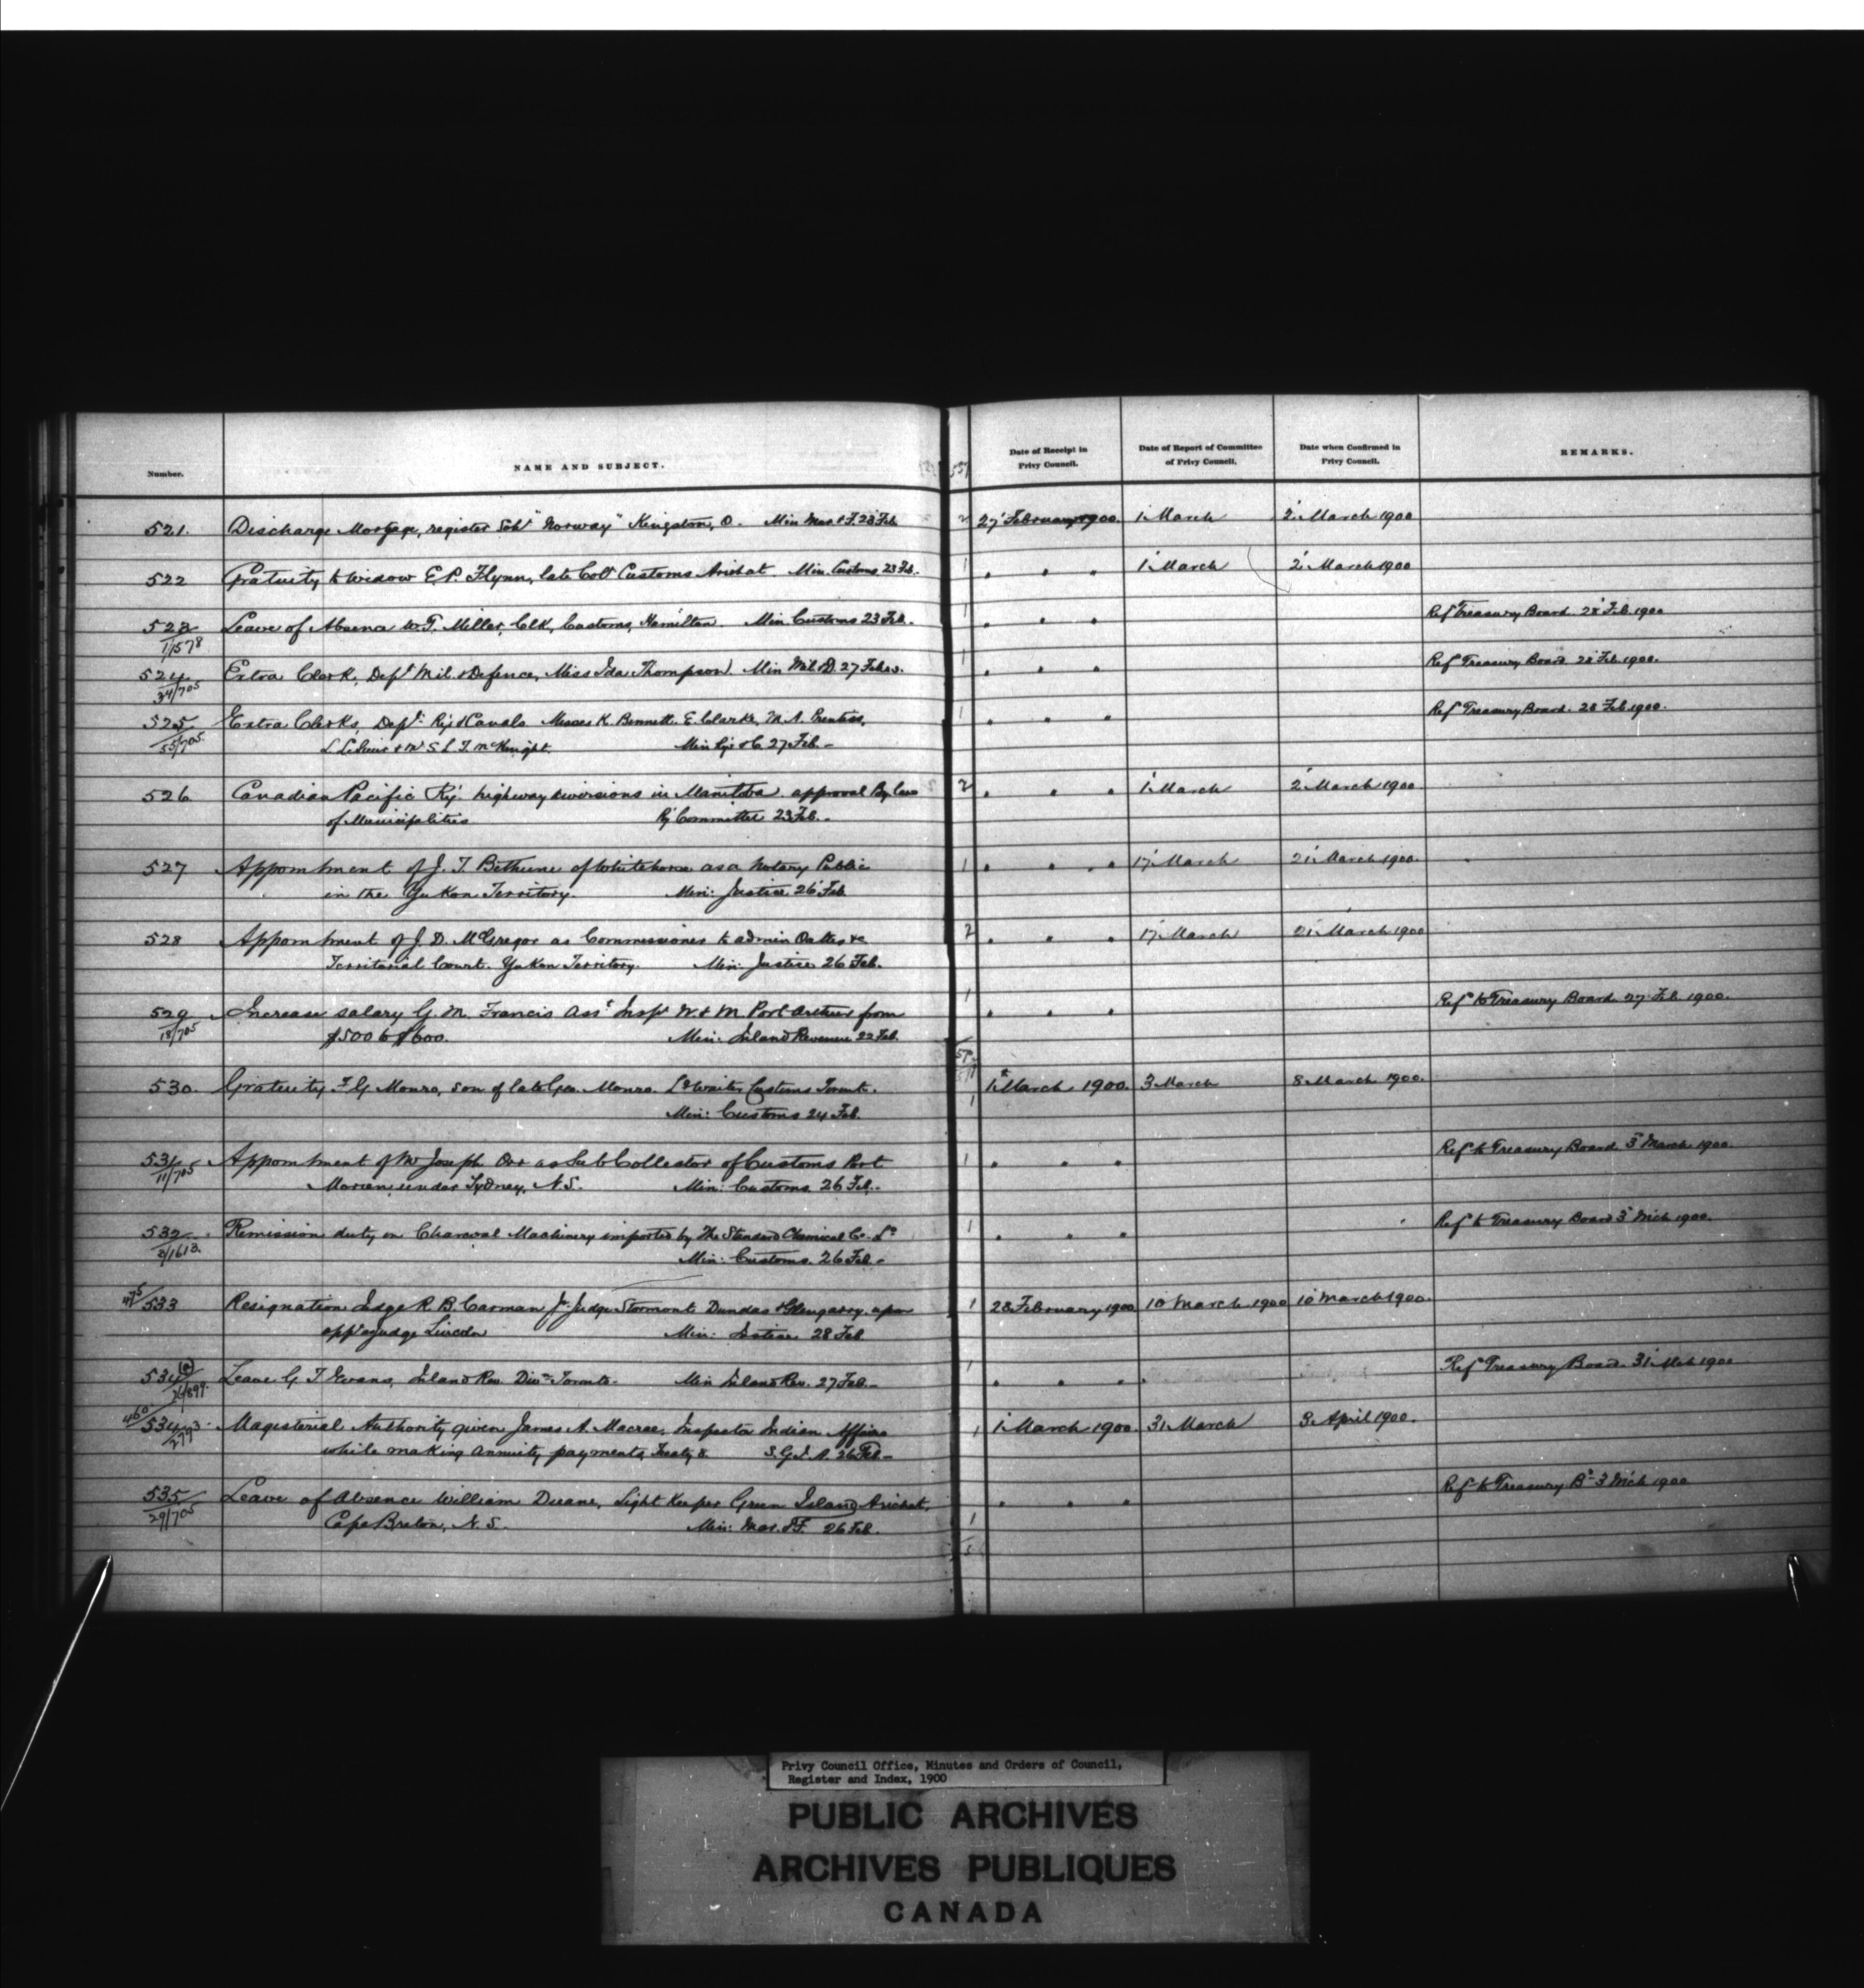 Number. NAME AND SUBJECT. Date of Receipt in Privy Council. Date of Report of Committee of Privy Council. Date when Confirmed in Privy Council. REMARKS.
521. Discharge Mortgage, register Schr "Norway" Kingston, O. Min Mar & F. 23 Feb. 2 27 February 1900. 1 March 2 March 1900
522 Gratuity to widow E.P. Flynn, late Colr Customs Arichat. Min. Customs 23 Feb. 1 " " " 1 March 2 March 1900
523 Leave of Absence W.T. Miller, Clk, Customs, Hamilton Min. Customs 23 Feb. 1 " " " Ref Treasury Board. 28 Feb. 1900
1/578
524 Extra Clerk, Dept Mil. & Defence, Miss Ida Thompson. Min Mil. D. 27 Feb. 1 " " " Ref Treasury Board 28 Feb. 1900.
34/705
525 Extra Clerks, Dept. Rys & Canals Misses K. Bennett. E. Clarke, M.A. Prentiss, 1 " " " Ref Treasury Board. 28 Feb 1900.
55/705 McKnight. Min Rys & C. 27 Feb.
526 Canadian Pacific Ry. highway diversions in Manitoba. approval By laws 2 " " " 1 March 2 March 1900
of Municipalities Ry Committee 23 Feb.
527 Appointment of J. T. Bethune of Whitehorse as a Notary Public 1 " " " 17 March 21 March 1900.
in the Yukon Territory. Min: Justice 26 Feb.
528 Appointment of J. D. McGregor as Commissioner to admin Oaths &c 2 " " " 17 March 21 March 1900
Territorial Court. Yukon Territory. Min: Justice 26 Feb.
529 Increase salary G. M. Francis Asst Inspr W. & M Port Arthur from 1 " " " Ref to Treasury Board 27 Feb. 1900.
18/705 $500 to $600. Min: Inland Revenue 22 Feb.
530. Gratuity F G Monro, son of late Geo. Monro. Ldg Waiter Customs Toront. 1 March 1900. 3 March 8 March 1900.
Min: Customs 24 Feb. 1
531 Appointment of Mr Joseph Orr as Sub Collector of Customs Port 1 " " " Ref to Treasury Board. 3 March 1900.
11/705 Morien, under Sydney, N.S. Min: Customs 26 Feb.
532 Remission duty on Charcoal Machinery imported by The Standard Chemical Co. Ld 1 " " " Ref to Treasury Board 3 Mch 1900.
2/1613. Min: Customs. 26 Feb.
475/533 Resignation Judge R. B. Carman Jr. Judge Stormont Dundas & Glengarry. upon 1 28 February 1900 10 March 1900 10 March 1900.
appt a Judge Lincoln Min: Justice 28 Feb.
534 (a) Leave G. T Evans, Inland Rev. Divn Toronto. Min Inland Rev. 27 Feb. 1 " " " Ref Treasury Board. 31 Mch 1900
460/534 Magisterial Authority given James A. Macrae, Inspector Indian Affairs 1 1 March 1900. 31 March 3 April 1900.
while making annuity payments, Treaty 8. S. G. I. A. 26 Feb.
535 Leave of Absence William Duane, Light Keeper Green Island, Arichat, " " " Ref to Treasury Bd 3 Mch 1900
29/705 Cape Breton, N.S. Min: Mar. & F. 26 Feb. 1
Privy Council Office, Minutes and Orders of Council,
Register and Index, 1900
PUBLIC ARCHIVES
ARCHIVES PUBLIQUES
CANADA